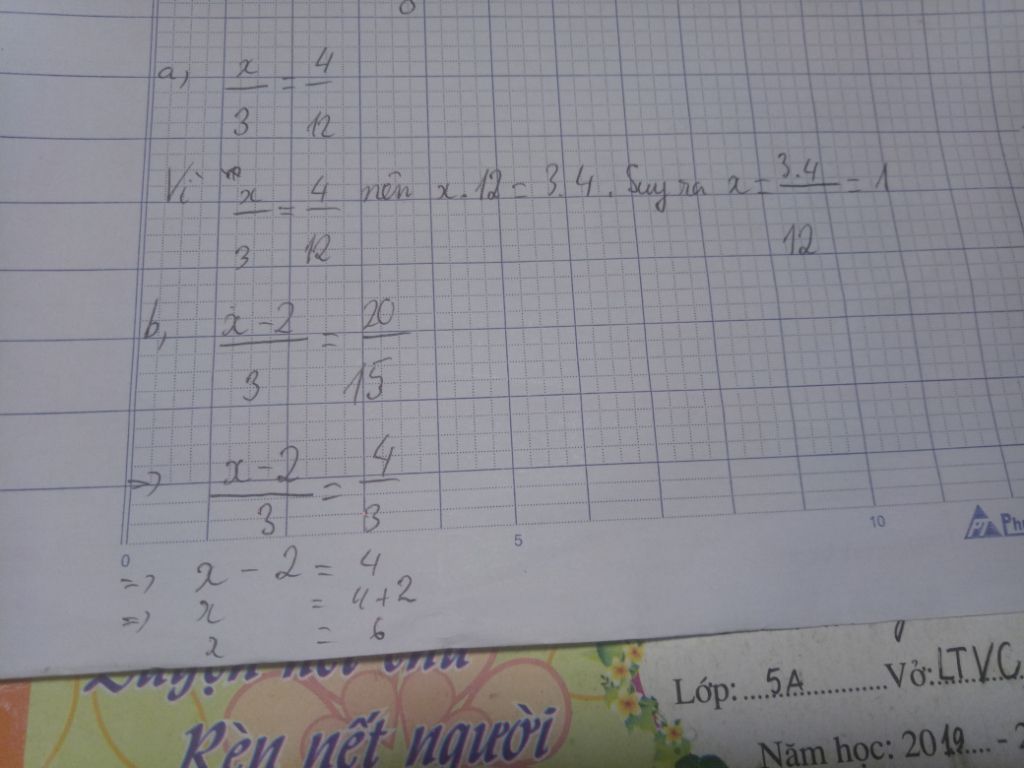 a, x/3 = 4/12
Vì x/3 = 4/12 nên x.12 = 3.4. Suy ra x = 3.4/12 = 1
b, x-2/3 = 20/15
=> x-2/3 = 4/3
0 5 10
=> x - 2 = 4
=> x = 4+2
x = 6
Rèn nết người
Lớp: 5A Vở: LTVC
Năm học: 2019 - 2